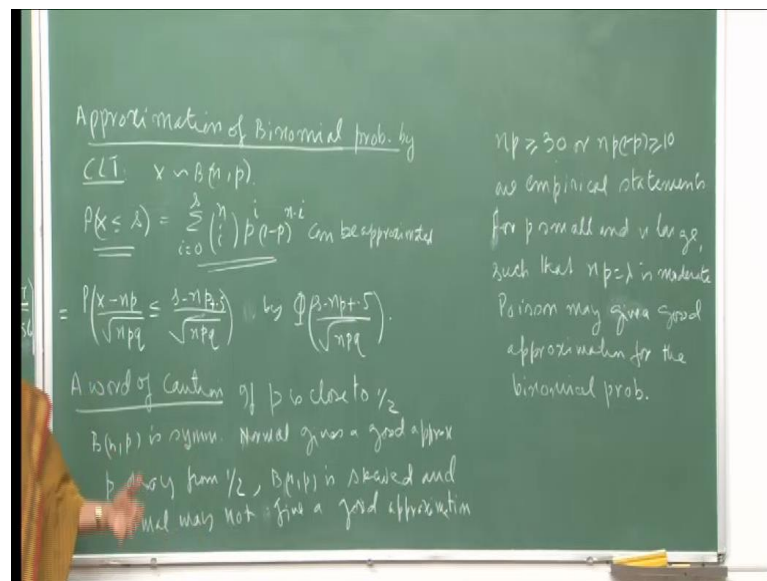 Approximation of Binomial prob. by
CLT: X ~ B(n, p).
P(X ≤ s) = \sum_{i=0}^{s} \binom{n}{i} p^i (1-p)^{n-i} can be approximated
= P(\frac{X-np}{\sqrt{npq}} ≤ \frac{s-np+.5}{\sqrt{npq}}) by Φ(\frac{s-np+.5}{\sqrt{npq}}).
A word of Caution If p is close to 1/2
B(n,p) is symm. Normal gives a good approx
p away from 1/2, B(n,p) is skewed and
may not give a good approximation
np ≥ 30 or np(1-p) ≥ 10
are empirical statements
for p small and n large,
such that np = λ is moderate
Poison may give a good
approximation for the
binomial prob.